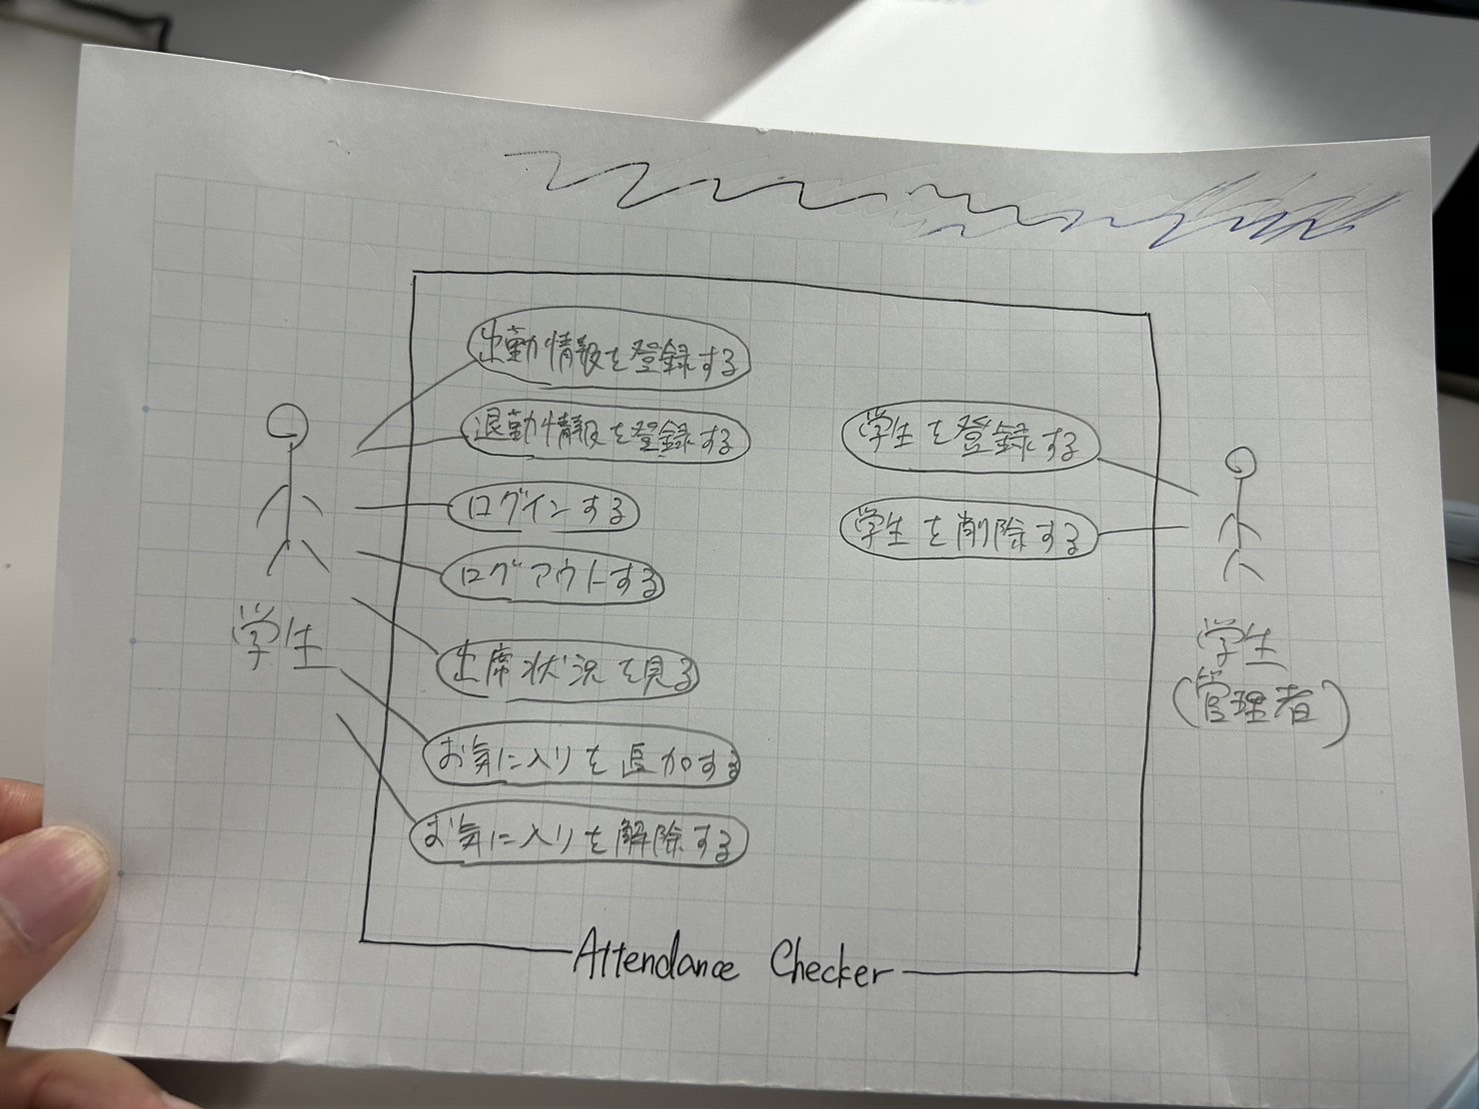 出勤情報を登録する
退勤情報を登録する
ログインする
ログアウトする
出席状況を見る
お気に入りを追加する
お気に入りを解除する
学生
学生を登録する
学生を削除する
学生
(管理者)
Attendance Checker